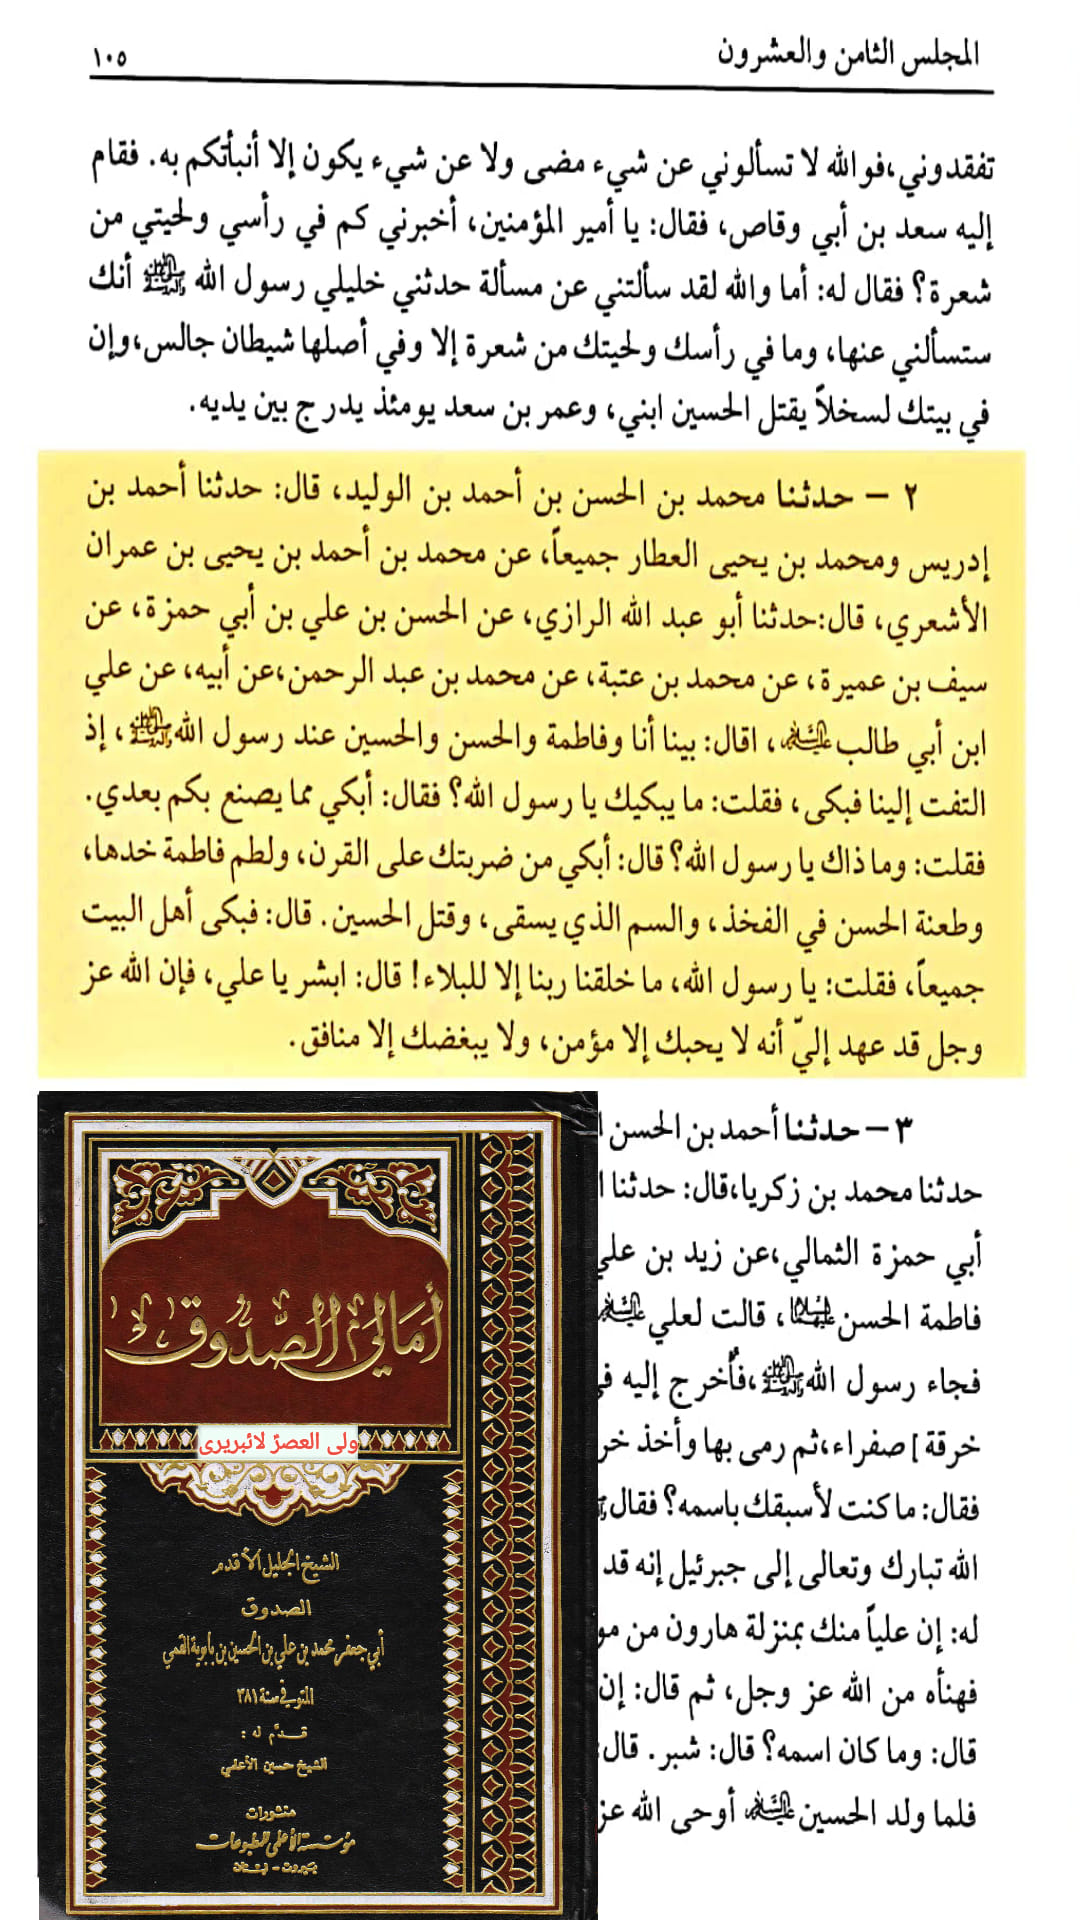 المجلس الثامن والعشرون
١٠٥
تفقدوني،فوالله لا تسألوني عن شيء مضى ولا عن شيء يكون إلا أنبأتكم به. فقام
إليه سعد بن أبي وقاص، فقال: يا أمير المؤمنين، أخبرني كم في رأسي ولحيتي من
شعرة؟ فقال له: أما والله لقد سألتني عن مسألة حدثني خليلي رسول الله ﷺ أنك
ستسألني عنها، وما في رأسك ولحيتك من شعرة إلا وفي أصلها شيطان جالس،وإن
في بيتك لسخلاً يقتل الحسين ابني، وعمر بن سعد يومئذ يدرج بين يديه.
٢ – حدثنا محمد بن الحسن بن أحمد بن الوليد، قال: حدثنا أحمد بن
إدريس ومحمد بن يحيى العطار جميعاً، عن محمد بن أحمد بن يحيى بن عمران
الأشعري، قال:حدثنا أبو عبد الله الرازي، عن الحسن بن علي بن أبي حمزة، عن
سيف بن عميرة، عن محمد بن عتبة، عن محمد بن عبد الرحمن،عن أبيه، عن علي
ابن أبي طالب عليه السلام، اقال: بينا أنا وفاطمة والحسن والحسين عند رسول الله ﷺ، إذ
التفت إلينا فبكى، فقلت: ما يبكيك يا رسول الله؟ فقال: أبكي مما يصنع بكم بعدي.
فقلت: وما ذاك يا رسول الله؟ قال: أبكي من ضربتك على القرن، ولطم فاطمة خدها،
وطعنة الحسن في الفخذ، والسم الذي يسقى، وقتل الحسين. قال: فبكى أهل البيت
جميعاً، فقلت: يا رسول الله، ما خلقنا ربنا إلا للبلاء! قال: ابشر يا علي، فإن الله عز
وجل قد عهد إليّ أنه لا يحبك إلا مؤمن، ولا يبغضك إلا منافق.
٣ – حدثنا أحمد بن الحسن
حدثنا محمد بن زكريا،قال: حدثنا
أبي حمزة الثمالي،عن زيد بن علي
فاطمة الحسن عليهما السلام، قالت لعلي عليه السلام
فجاء رسول الله ﷺ،فأُخرج إليه
خرقة] صفراء،ثم رمى بها وأخذ
فقال: ما كنت لأسبقك باسمه؟ فقال
الله تبارك وتعالى إلى جبرئيل إنه قد
له: إن علياً منك بمنزلة هارون من
فهنأه من الله عز وجل، ثم قال: إن
قال: وما كان اسمه؟ قال: شبر. قال:
فلما ولد الحسين عليه السلام أوحى الله عز
أمالي الصدوق
ولی العصرؑ لائبریری
الشيخ الجليل الأقدم
الصدوق
أبي جعفر محمد بن علي بن الحسين بن بابويه القمي
المتوفى سنة ٣٨١
قدّم له :
الشيخ حسين الأعلمي
منشورات
مؤسسة الأعلمي للمطبوعات
بيروت - لبنان